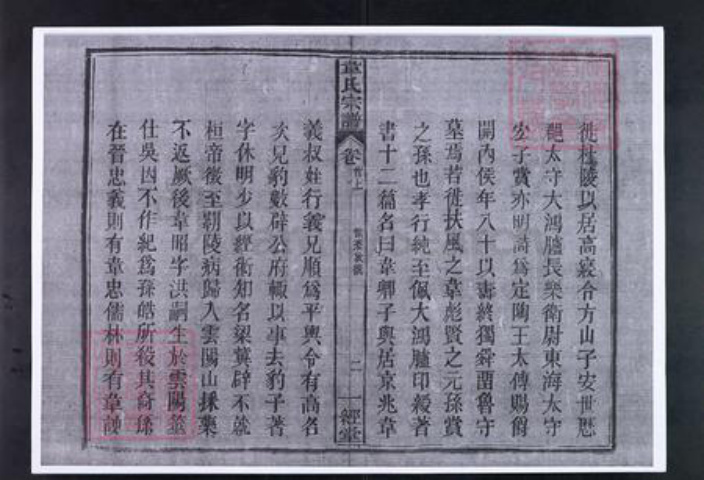 徙杜陵以居高寢令方山子安世歷
魏太守大鴻臚長樂衛尉東海太守
安子賞亦明詩為定陶王太傅賜爵
關內侯年八十以壽終獨舜留魯守
墓焉若徙扶風之韋彪賢之元孫賞
之孫也孝行純至佩大鴻臚印綬著
書十二篇名曰韋卿子與居京兆韋
韋氏宗譜
卷首上
二
一經堂
義叔姓行義兄順為平輿令有高名
次兄豹數辟公府輒以事去豹子著
字休明少以經術知名梁冀辟不就
桓帝徵至霸陵病歸入雲陽山採藥
不返厥後韋昭字洪嗣生於雲陽
仕吳因不作紀為孫皓所殺其
在晉忠義則有韋忠儒林則有韋謏